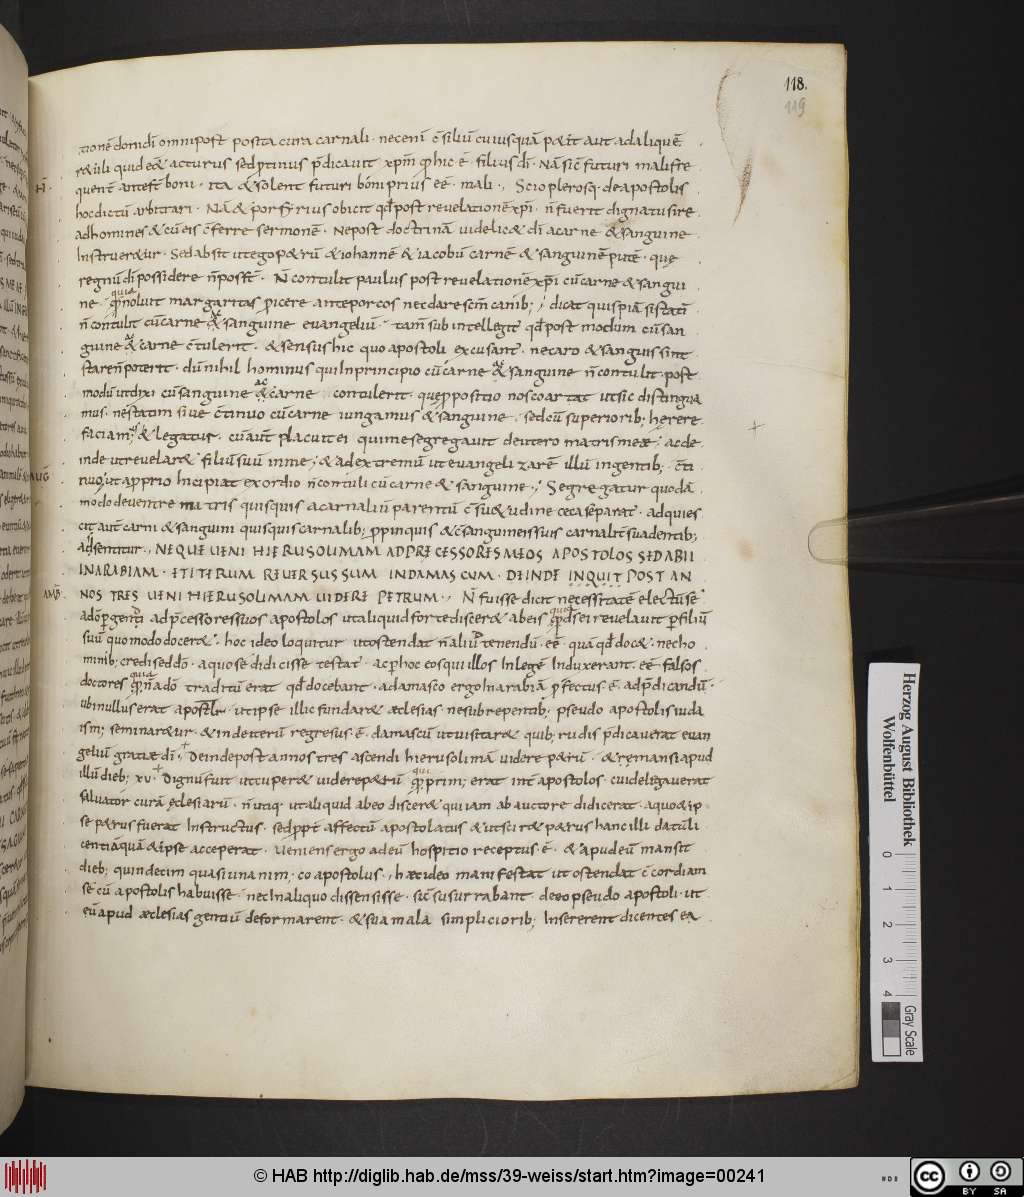 118.
119
tionẽ domı dı̃ omnipoſt poſita cura carnali · nec enı̃ ẽ ſiliũ cuiuſquã p&it aut ad aliquẽ
r&uli quid eẽ acturuſ ſed ptinuſ p̃dicauit xpm̃ q hic ẽ · filiuſ dı̃ · Nã ſic̃ futuri mali fre
H̃ · quent̃ anteſt̃ boni · ita & ſolent futuri boni priuſ eẽ · mali · , Scio pleroſq · de apoſtoliſ
hoc dictũ arbitrari · Nã & porfiriuſ obicit qđ poſt reuelationẽ xpı̃ · ñ fuerit dignatuſ ire
ad homineſ & cũ eiſ c̃ferre ſermonẽ · Ne poſt doctrinã uidelic& dı̃ a carne & ſanguine
Inſtruer&ur · Sed abſit ut ego p&rũ & iohannẽ & iacobũ carnẽ & ſanguinẽ putẽ · quę
regnũ dı̃ poſſidere ñ poſſt̃ · Ñ contulit pauluſ poſt reuelationẽ xpı̃ cũ carne & ſangui
ne · quia noluit margaritaſ p̱icere ante porcoſ nec dare ſcm̃ canib; ; dicat quiſpiã ſi ſtatı̃
ñ contulit cũ carne & ſanguine euangeliũ · tam̃ ſubintellegit̃ qđ poſt modum cũ ſan
guine & carne c̃tulerit · & ſenſuſ hic quo apoſtoli excuſant̃ · ne caro & ſanguiſ ſint
ſtare ñ poterit · dũ nihil hominuſ qui In principio cũ carne & ſanguine ñ contulit · poſt
modũ ut dixi cũ ſanguine & carne contulerit · quę p̱poſitio noſ coartat ut ſic diſtingua
muſ · ne ſtatim ſiue c̃tinuo cũ carne iungamuſ & ſanguine · ſed cũ ſuperiorib; hęrere
faciam; & legatur · cũ aut̃ placuit ei qui me ſegregauit de utero matriſ meæ · ac de
inde ut reuelar& filiũ ſuũ in me ; & ad extremũ ut euangelizarẽ illũ in gentib; · c̃ti
AUG̃ nuo; ut a p̱prio Incipiat exordio ñ contuli cũ carne & ſanguine · ; Segregatur quodã
modo de uentre matriſ quiſquiſ a carnaliũ parentũ c̃ſu&udine cęca ſeparat̃ · adquieſ
cit aut̃ carni & ſanguini quiſquiſ carnalib; p̱pinquiſ & c̃ſanguineiſ ſuiſ carnalit̃ ſuadentib;
adſentitur · , NEQUE UENI HIERUSOLIMAM AD PRECESSORES MEOS APOSTOLOS SED ABII
IN ARABIAM · ET ITERUM REUERSUS SUM IN DAMASCUM · DEINDE INQUIT POST AN
AMB̃ · NOS TRES UENI HIERUSOLIMAM UIDERE PETRUM · , Ñ fuiſſe dicit neceſſitatẽ electũ ſe
a dõ pgere ad p̃ceſſoreſ ſuoſ apoſtoloſ ut aliquid forte diſcer& ab eiſ quia dſ ei reuelauit p filiũ
ſuũ quomodo docer& · hoc ideo loquitur ut oſtendat ñ aliũ tenendũ · eẽ · quã qđ doc& · nec ho
minib; credi ſed dõ · a quo ſe didiciſſe teſtat̃ · ac p hoc eoſ qui illoſ In legẽ Induxerant · eẽ falſoſ
doctoreſ quia ñ a dõ traditũ erat qđ docebant · a damaſco ergo In arabiã pfectuſ ẽ · ad p̃dicandũ ·
ubi nulluſ erat apoſtoluſ ut ipſe illic fundar& æcleſiaſ ne ſubrepentib; pſeudo apoſtoliſ iuda
iſm; ſeminar&ur · & inde iterũ regreſuſ ẽ · damaſcũ ut uiſitar& quib; rudiſ p̃dicauerat euan
geliũ gratiæ dı̃ ; Deinde poſt annoſ treſ aſcendi hieruſolimã uidere p&rũ · & remanſi apud
illũ dieb; xv · Dignũ fuit ut cuper& uidere p&rũ qui prim; erat int̃ apoſtoloſ · cui delegauerat
ſaluator curã ęcleſiarũ · ñ utiq · ut aliquid ab eo diſcer& qui iam ab auctore didicerat · a quo & ip
ſe p&ruſ fuerat Inſtructuſ · ſed p̱pt̃ affectũ apoſtolatuſ & ut ſcir& p&ruſ hanc illi datã li
centiã quã & ipſe acceperat · Uenienſ ergo ad eũ hoſpitio receptuſ ẽ · & apud eũ manſit
dieb; quindecim quaſi unanim; coapoſtoluſ · , hæc ideo manifeſtat ut oſtendat c̃cordiam
ſe cũ apoſtoliſ habuiſſe · nec In aliquo diſſenſiſſe · ſic̃ ſuſurrabant · de eo pſeudo apoſtoli · ut
eũ apud æcleſiaſ gentiũ deformarent · & ſua mala ſimpliciorib; Inſererent dicenteſ ea
Herzog August Bibliothek
Wolfenbüttel
0 1 2 3 4
Gray Scale
© HAB http://diglib.hab.de/mss/39-weiss/start.htm?image=00241
cc BY SA